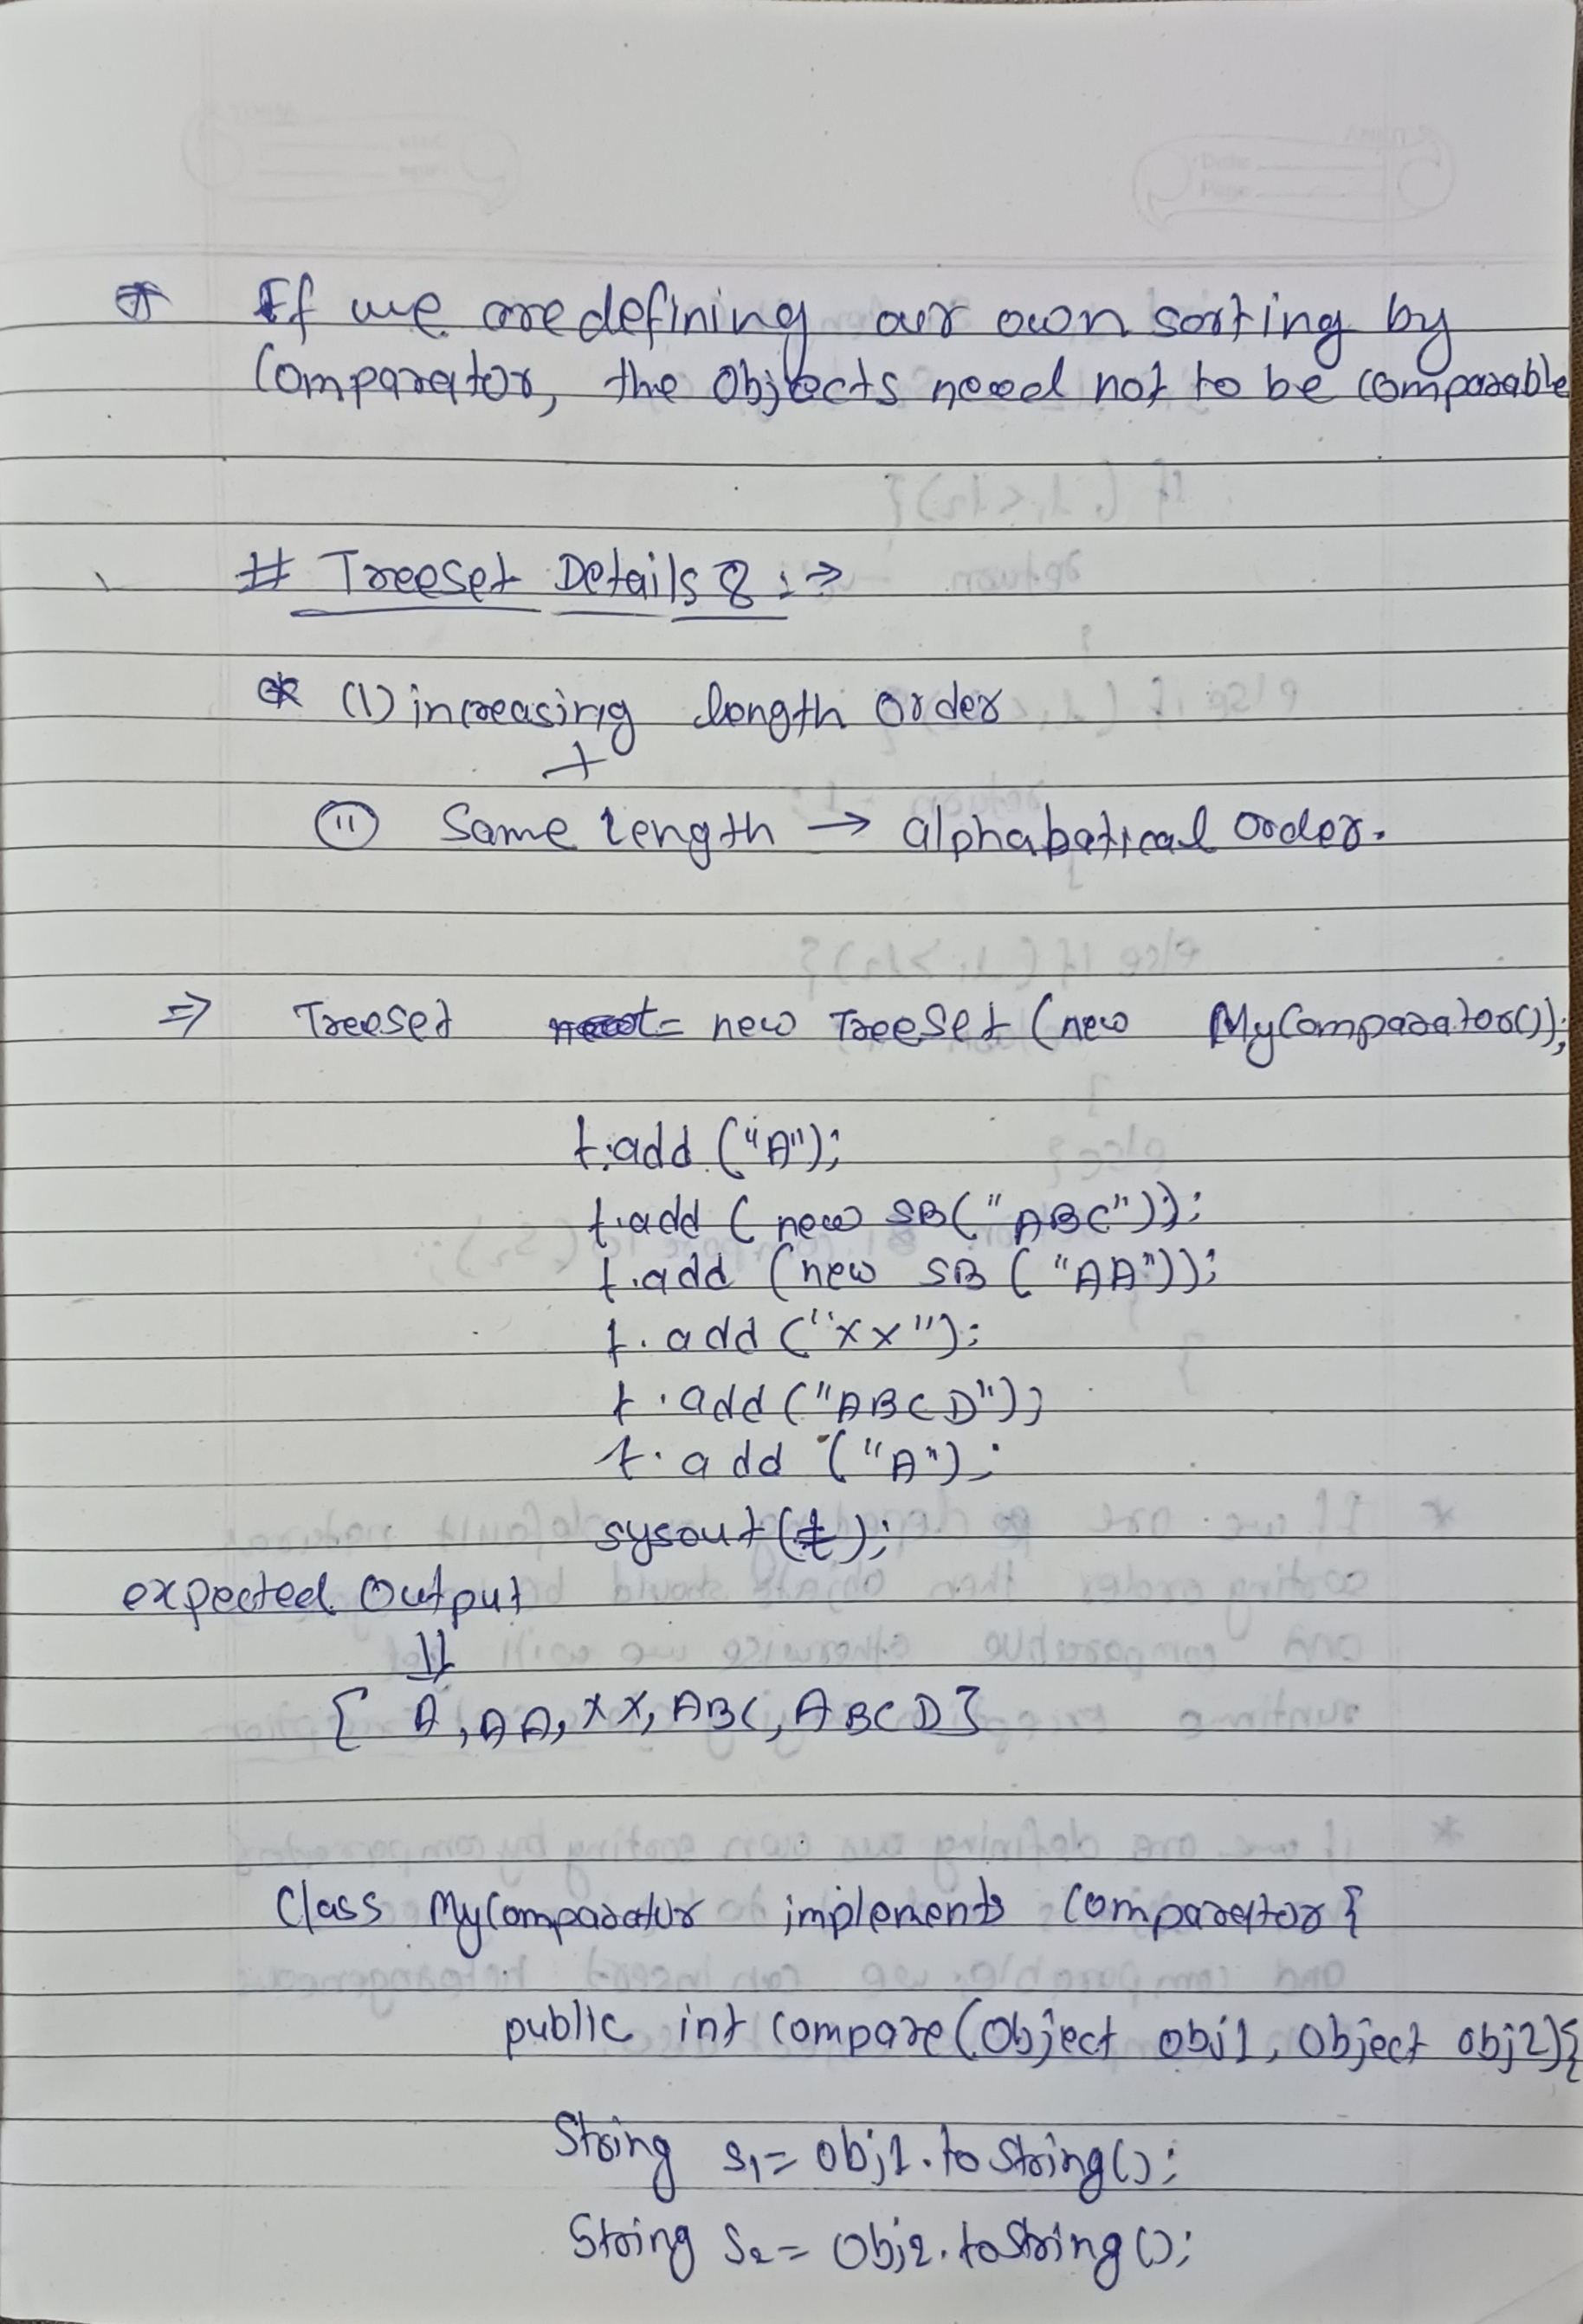 * If we are defining our own sorting by
Comparator, the Objects need not to be comparable
# Treeset Details 8 : ⇒
* (1) increasing length order
+
(11) Same length → alphabatical order.
⇒ Treeset t = new TreeSet (new MyComparator());
t.add ("A");
t.add ( new SB("ABC"));
t.add (new SB ("AA"));
t.add ("XX");
t.add ("ABCD");
t.add ("A");
sysout(t);
expected Output
⇓
{ A, AA, XX, ABC, ABCD }
Class MyComparator implements Comparator {
public int compare(Object obj1, Object obj2){
String s1 = obj1.toString();
String s2 = Obj2.toString();